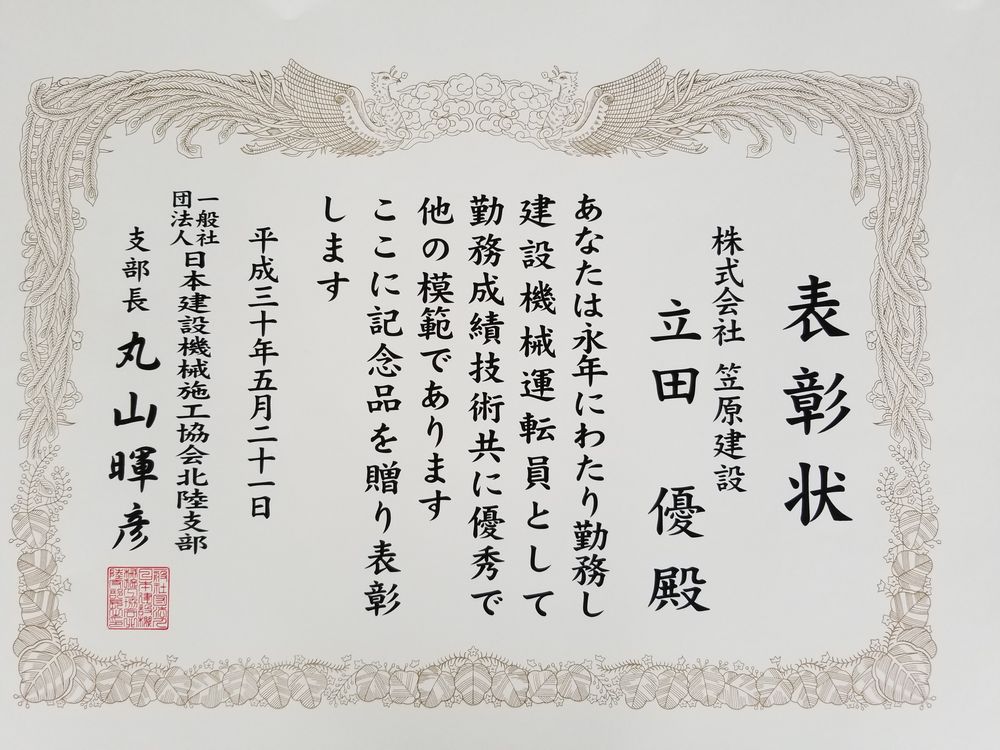 表彰状
株式会社 笠原建設
立田 優 殿
あなたは永年にわたり勤務し
建設機械運転員として
勤務成績技術共に優秀で
他の模範であります
ここに記念品を贈り表彰
します
平成三十年五月二十一日
一般社団法人日本建設機械施工協会北陸支部
支部長 丸山暉彦